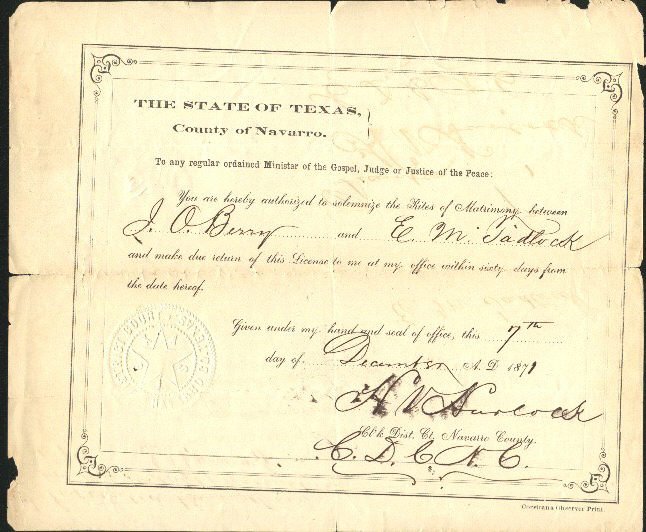 THE STATE OF TEXAS,
County of Navarro.
To any regular ordained Minister of the Gospel, Judge or Justice of the Peace:
You are hereby authorized to solemnize the Rites of Matrimony between
J. O. Berry and E. M. Tadlock
and make due return of this License to me at my office within sixty days from
the date hereof.
Given under my hand and seal of office, this 7th
day of December A. D 1871
H V Hurlock
Cl'k Dist. Ct. Navarro County.
C. D. C N. C.
Corsicana Observer Print.